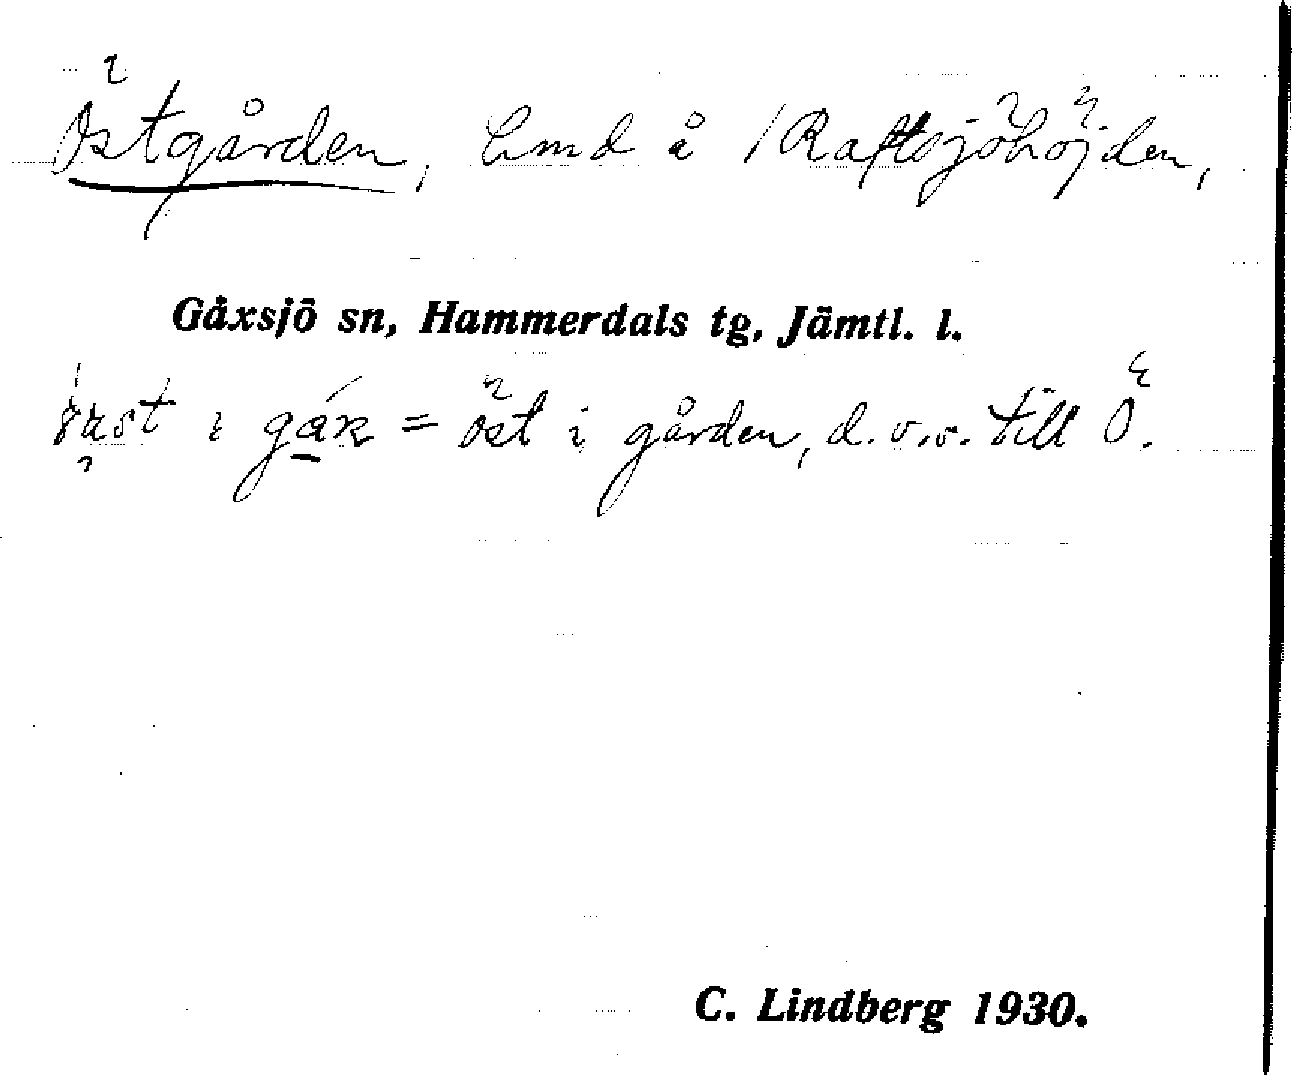 Östgården, hmd å /Raftsjöhöjden,
Gåxsjö sn, Hammerdals tg, Jämtl. l.
= öst i gården, d.v.s. till Ö.
C. Lindberg 1930.